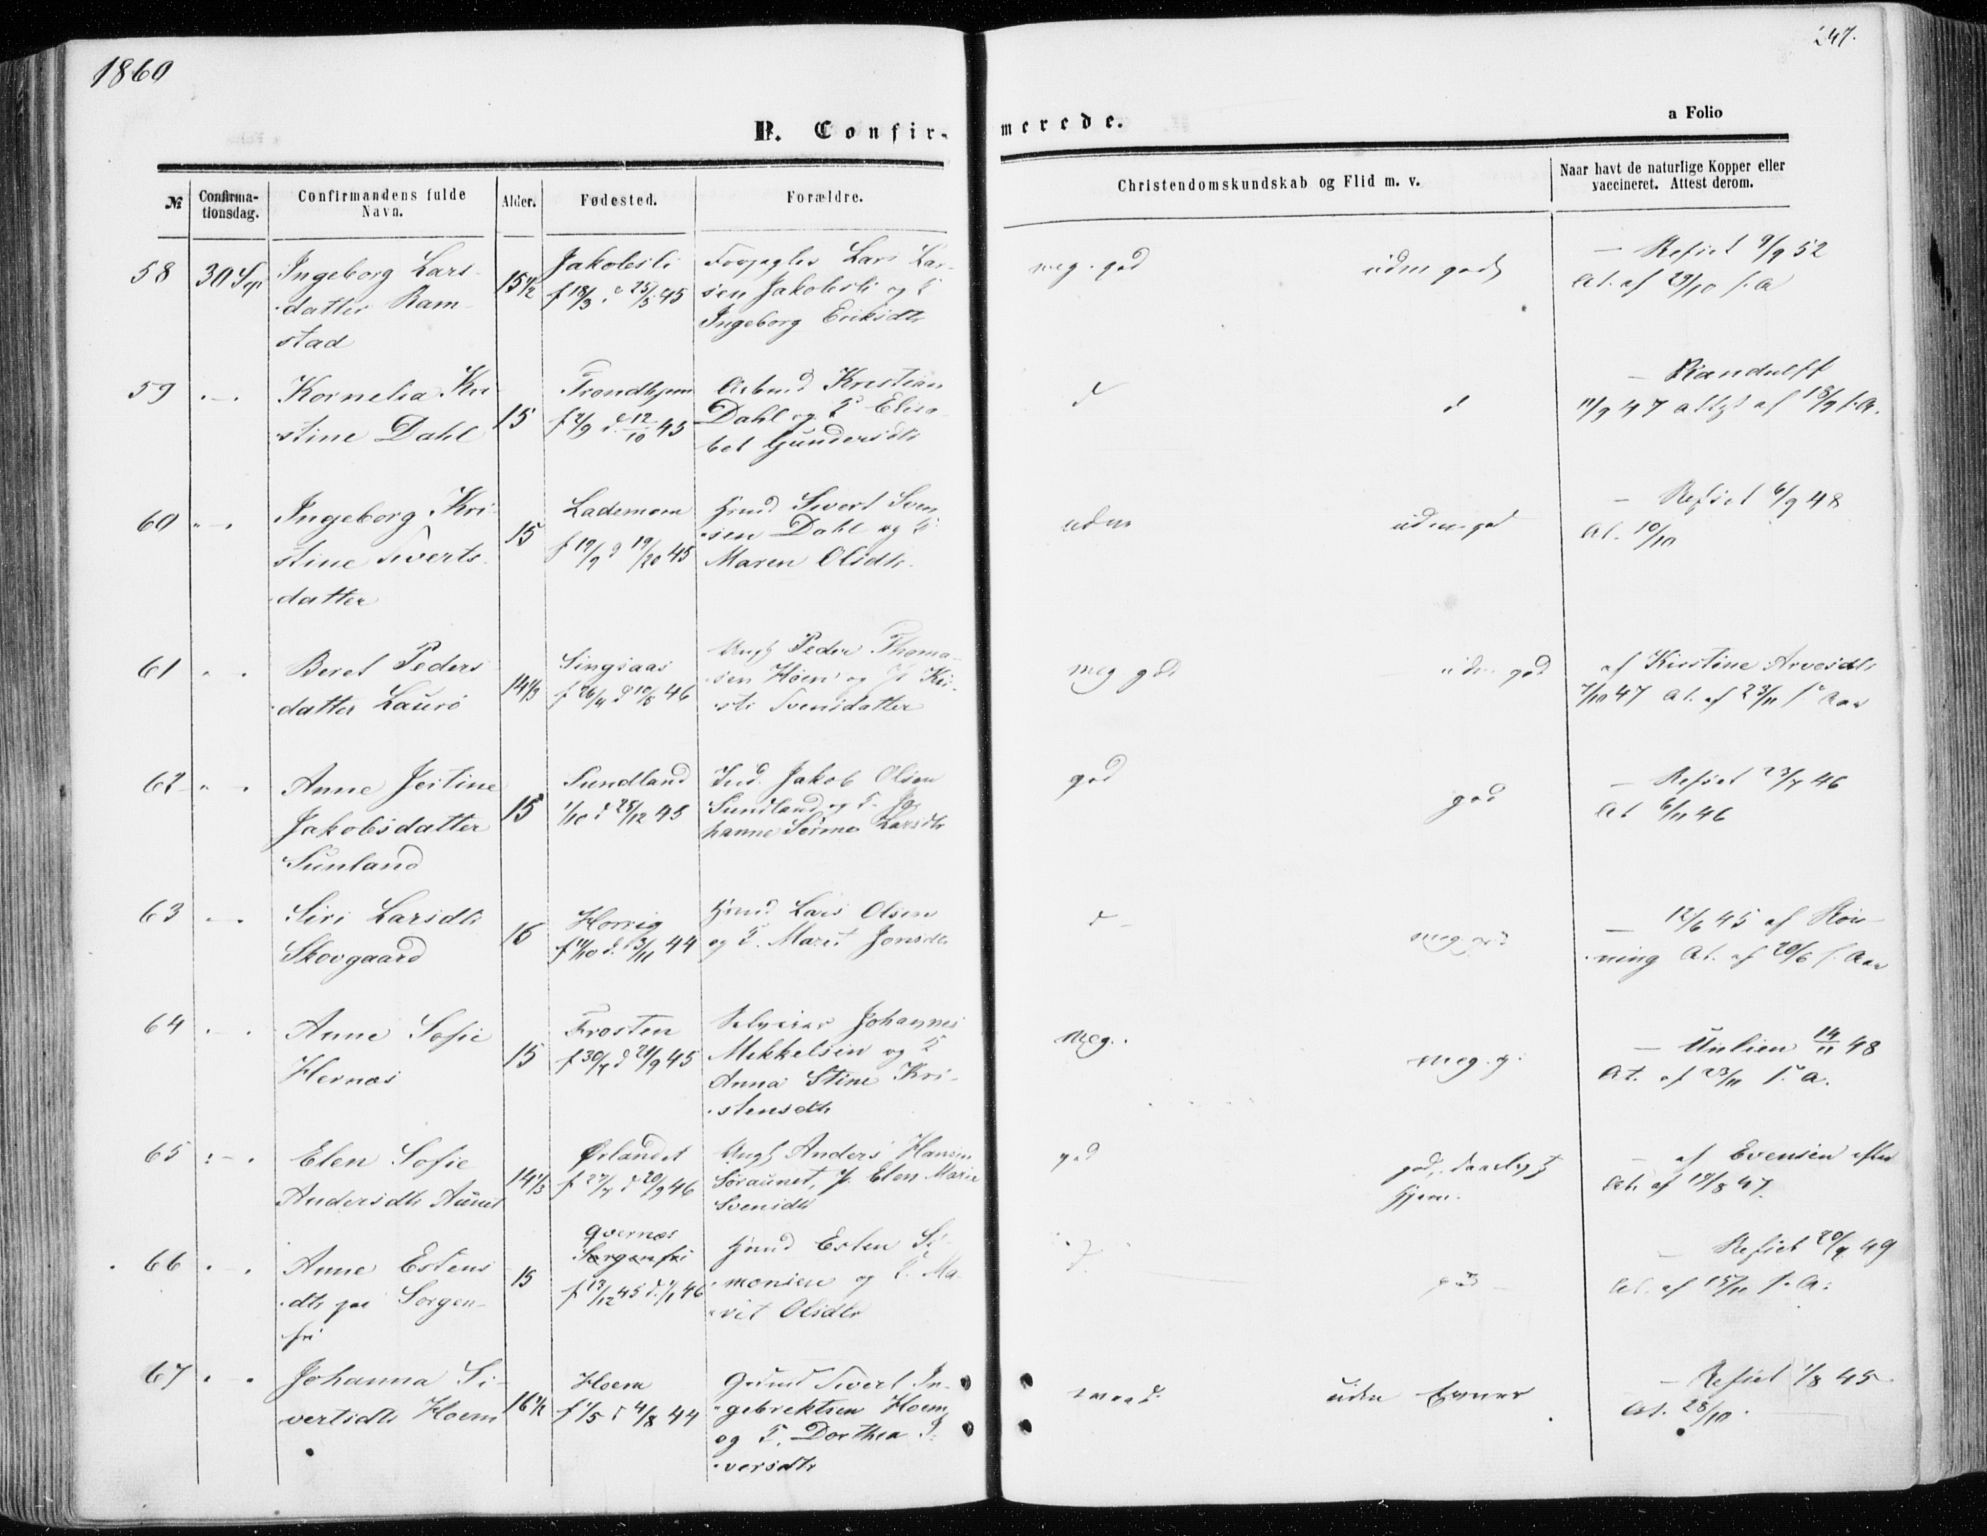 1860
247.
B. Confir-
merede.
a Folio
№
Confirma-
tionsdag.
Confirmandens fulde
Navn.
Alder.
Fødested.
Forældre.
Christendomskundskab og Flid m. v.
Naar havt de naturlige Kopper eller
vaccineret. Attest derom.
58
30 Sep
Ingeborg Lars-
datter Ram-
stad
15 1/2
Jakobsli
f 18/3 d 25/3 45
Lars Lar-
sen Jakobsli og
Ingeborg Eriksdtr
meg. god
udm godt
— Refset 9/9 52
At. af 23/10 s. A
59
Kornelia Kri
stine Dahl
15
Trondhjem
f 2/9 d. 12/10 45
Arbmd Kristian
Dahl og F Elisa
bet Gundersdtr
d
d
— Randulff
11/9 47 af 18/9 s. A.
60
Ingeborg Kri-
stine Siverts
datter
15
Lademoen
f 19/9 d 19/20 45
Gmd Sivert Sven
sen Dahl og F
Maren Olsdtr.
udm
udm. god
— Refset 6/9 48
At. 10/10
61
Beret Peders
datter Laurö
14 1/3
Singsaas
f 26/4 d 10/5 46
Ungk Peder Thoma-
sen Høen og P. Kri-
sti Svensdatter
meg god
udm. god
af Kirstine Arvesdtr
7/10 47 At. af 23/11 s. Aar
62
Anne Jestine
Jakobsdatter
Sunland
15
Sundland
1/10 d 28/12 45
Ind. Jakob Olsen
Sundland og F. Jo-
hanne Larsdtr
god
god
— Refset 23/7 46
At 6/11 46
63
Siri Larsdtr
Skovgaard
16
Horrig
f 14/10 d. 3/11 44
Gmd Lars Olsen
og F. Marit Jonsdtr
d
meg god
— 12/6 45 af Røn-
ning At. af 20/6 s. Aar
64
Anne Sofie
Hernæs
15
Frosten
f 30/7 d 21/9 45
Selveier Johannes
Mekkelsen og F
Anna Stine Kri-
stensdtr
Meg.
meg. g.
— Unlien 14/11 48
At. af 23/11 s. A.
65
Elen Sofie
Andersdtr Aunet
14 1/3
Ørlandet
f 27/7 d 20/9 46
Ungk Anders Hansen
Søraunet, P. Elen Marie
Svensdtr
god
god,
— af Evensen efter
At. af 19/8 47.
66
Anne Estens
dtr paa Sorgen-
fri
15
Qvernæs
Sorgenfri
f 13/12 45 d. 1/1 46
Gmd Esten Si-
monsen og F. Ma-
rit Olsdtr
god
— Refset 20/7 49
At. af 15/11 s. A.
67
Johanna Si-
vertsdtr Hoem
16 1/2
Hoem
f 1/5 d 4/8 44
Grmd Sivert In-
gebrektsen Hoem
og F. Dorthea I-
versdtr
maad.
uden Evner
— Refset 1/8 45
At. 28/10.